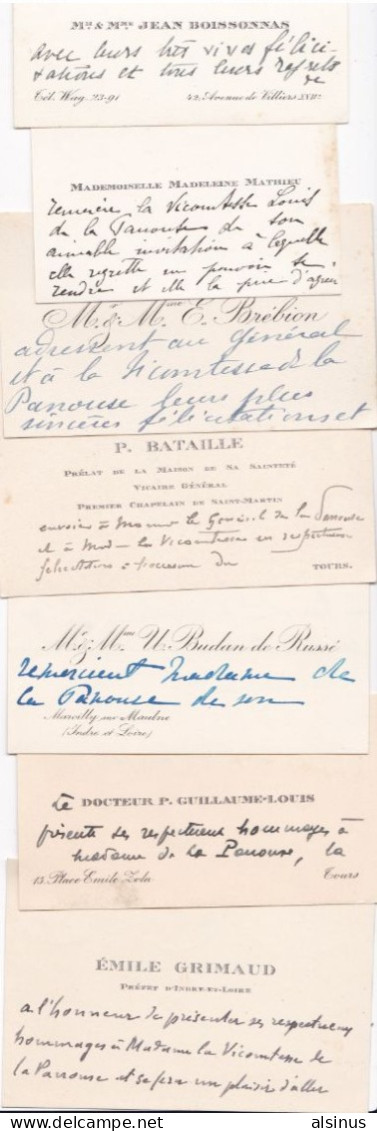 Mr & Mme JEAN BOISSONNAS
avec leurs très vives félici-
tations et tous leurs regrets
de
Tél. Wag. 23-91 42, Avenue de Villiers, XVIIe
MADEMOISELLE MADELEINE MATHIEU
remercie la Vicomtesse Louis
de la Panouse de son
aimable invitation à laquelle
elle regrette
rendre et elle la prie d'agréer
Mr & Mme E. Brébion
adressent au Général
et à la Vicomtesse de la
Panouse leurs plus
sincères félicitations et
P. BATAILLE
PRÉLAT DE LA MAISON DE SA SAINTETÉ
VICAIRE GÉNÉRAL
PREMIER CHAPELAIN DE SAINT-MARTIN
le Général de la Panouse
et à la Vicomtesse
félicitations
TOURS.
Mr & Mme U. Budan de Russé
remercient Madame de
la Panouse de son
Marcilly sur Maulne
(Indre et Loire)
Le DOCTEUR P. GUILLAUME-LOUIS
présente ses respectueux hommages à
madame de la Panouse, la
15, Place Emile Zola Tours
ÉMILE GRIMAUD
PRÉFET D'INDRE-ET-LOIRE
a l'honneur de présenter ses respectueux
hommages à Madame la Vicomtesse de
la Panouse et se fera un plaisir d'aller
alsinus | delcampe.net